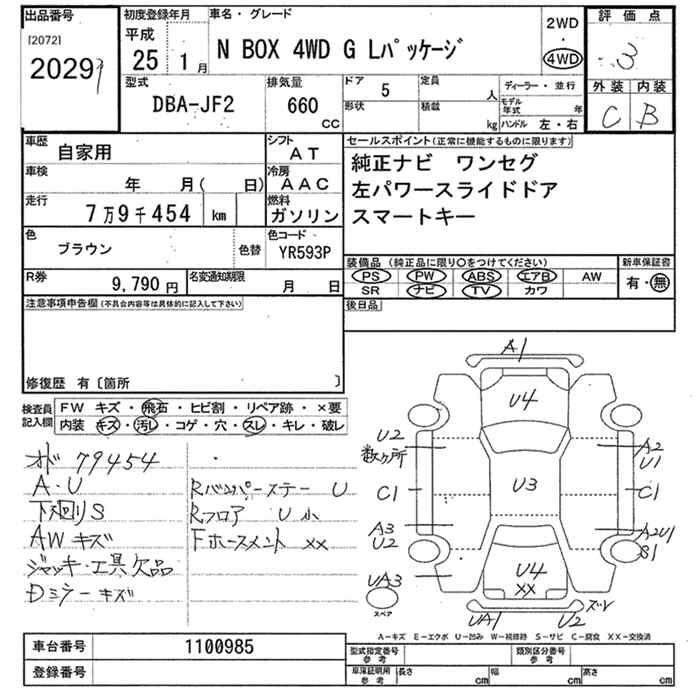 出品番号
[2072]
2029
初度登録年月
平成
25 1月
車名・グレード
N BOX 4WD G Lパッケージ
2WD
・
4WD
評価点
3
外装 内装
C B
型式
DBA-JF2
排気量
660
CC
ドア 5
形状
定員 人
積載 kg
ディーラー・並行
モデル年式 年
ハンドル 左・右
車歴
自家用
シフト
AT
車検
年 月( 日)
冷房
AAC
走行
7万9千454 km
燃料
ガソリン
色
ブラウン
色替
色コード
YR593P
R券
9,790 円
名変通知期限
月 日
セールスポイント(正常に機能するものに限ります)
純正ナビ ワンセグ
左パワースライドドア
スマートキー
装備品(純正品に限り○をつけてください)
PS PW ABS エアB AW
SR ナビ TV カワ
新車保証書
有・無
後日品
注意事項申告欄(不具合内容等は具体的に記入して下さい)
修復歴 有〔箇所 〕
検査員
記入欄
FW キズ・飛石・ヒビ割・リペア跡・×要
内装 キズ・汚レ・コゲ・穴・スレ・キレ・破レ
オド 79454
A・U
下廻りS
AWキズ
ジャッキ・工具欠品
Dミラーキズ
Rバンパーステー U
Rフロア U小
Fホースメント XX
A1
U4
U2
数ヶ所
A2
U1
C1
U3
C1
A3
U2
A2U1
S1
UA3
U4
XX
スペア
UA1
U2
ズレ
A-キズ E-エクボ U-凹み W-補修跡 S-サビ C-腐食 XX-交換済
車台番号
1100985
登録番号
型式指定番号
参考
類別区分番号
参考
車庫証明用
参考
長さ cm
幅 cm
高さ cm